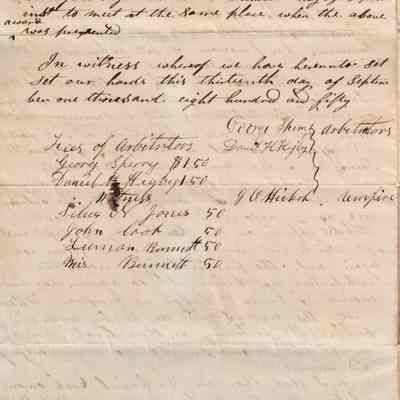 inst to meet at the same place, when the above
award
was presented
In witness whereof we have hereunto set
set our hands this thirteenth day of Septem
ber one thousand eight hundred and fifty
George Sperry arbitrators
Daniel H Higby
Fees of Arbitrators
Georg Sperry $1.50
Daniel H Higby 1.50
Witness
J O Hickok umpire
Silus Jones 50
John Cook 50
Lunman Bennett 50
Bennett 50